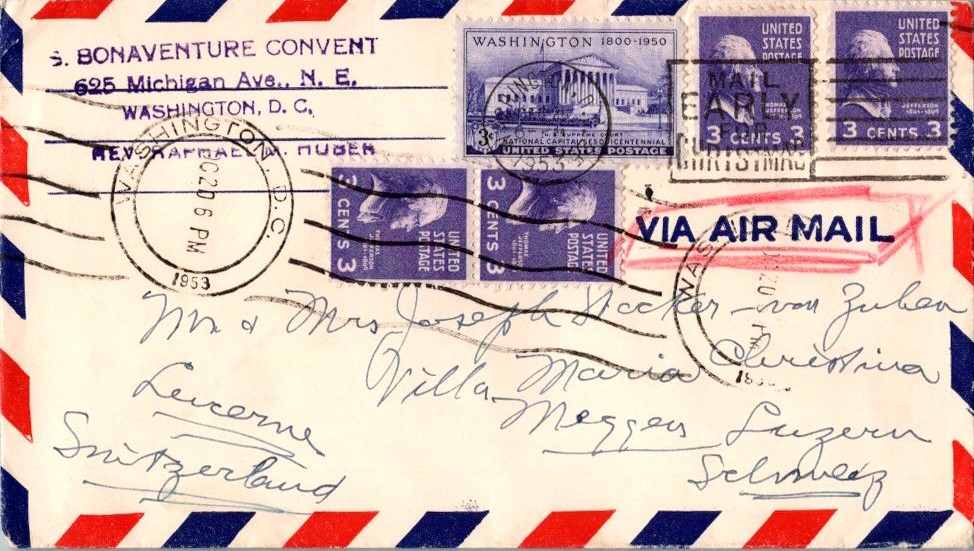 S. BONAVENTURE CONVENT
625 Michigan Ave., N. E.
WASHINGTON, D. C.
REV. RAPHAEL M. HUBER
WASHINGTON 1800-1950
3¢
U.S. SUPREME COURT
NATIONAL CAPITAL SESQUICENTENNIAL
UNITED STATES POSTAGE
1953
UNITED
STATES
POSTAGE
THOMAS
JEFFERSON
3 CENTS 3
UNITED
STATES
POSTAGE
JEFFERSON
3 CENTS 3
MAIL
EARLY
CHRISTMAS
WASHINGTON, D.C.
DEC 20 6 PM
1953
3 CENTS 3
UNITED
STATES
POSTAGE
THOMAS
JEFFERSON
3 CENTS 3
UNITED
STATES
POSTAGE
THOMAS
JEFFERSON
VIA AIR MAIL
Mr & Mrs Joseph Stocker-von Zuben
Villa Maria Christina
Meggen Luzern
Schweiz
Lucerne
Switzerland